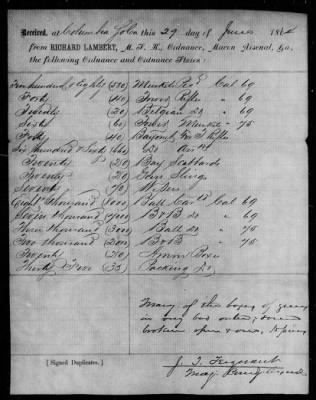 Received, at Columbia Cola this 29 day of June 186
from RICHARD LAMBERT, M. S. K., Ordnance, Macon Arsenal, Ga.,
the following Ordnance and Ordnance Stores:
hundred & eight Muskets Cal 69
Forty (40) Rifles " 69
Twenty (20) Belgian do " 69
(60) Muskets " 75
Forty (40) Bayonet Rifles
Six hundred & (660) do
Twenty (20) Bay Scabbards
Twenty (20) Slings
(70) Wipers
Eight Thousand (8000) Ball Car Cal 69
Seven Thousand (7000) B & B " 69
Three Thousand (3000) Ball do " 75
Two Thousand (2000) B & B " 75
Twenty (20) Boxes
Thirty Five (35) Packing do
Many of the boxes of guns
in very bad order, some
broken open &
J. T.
Maj
[Signed Duplicates.]